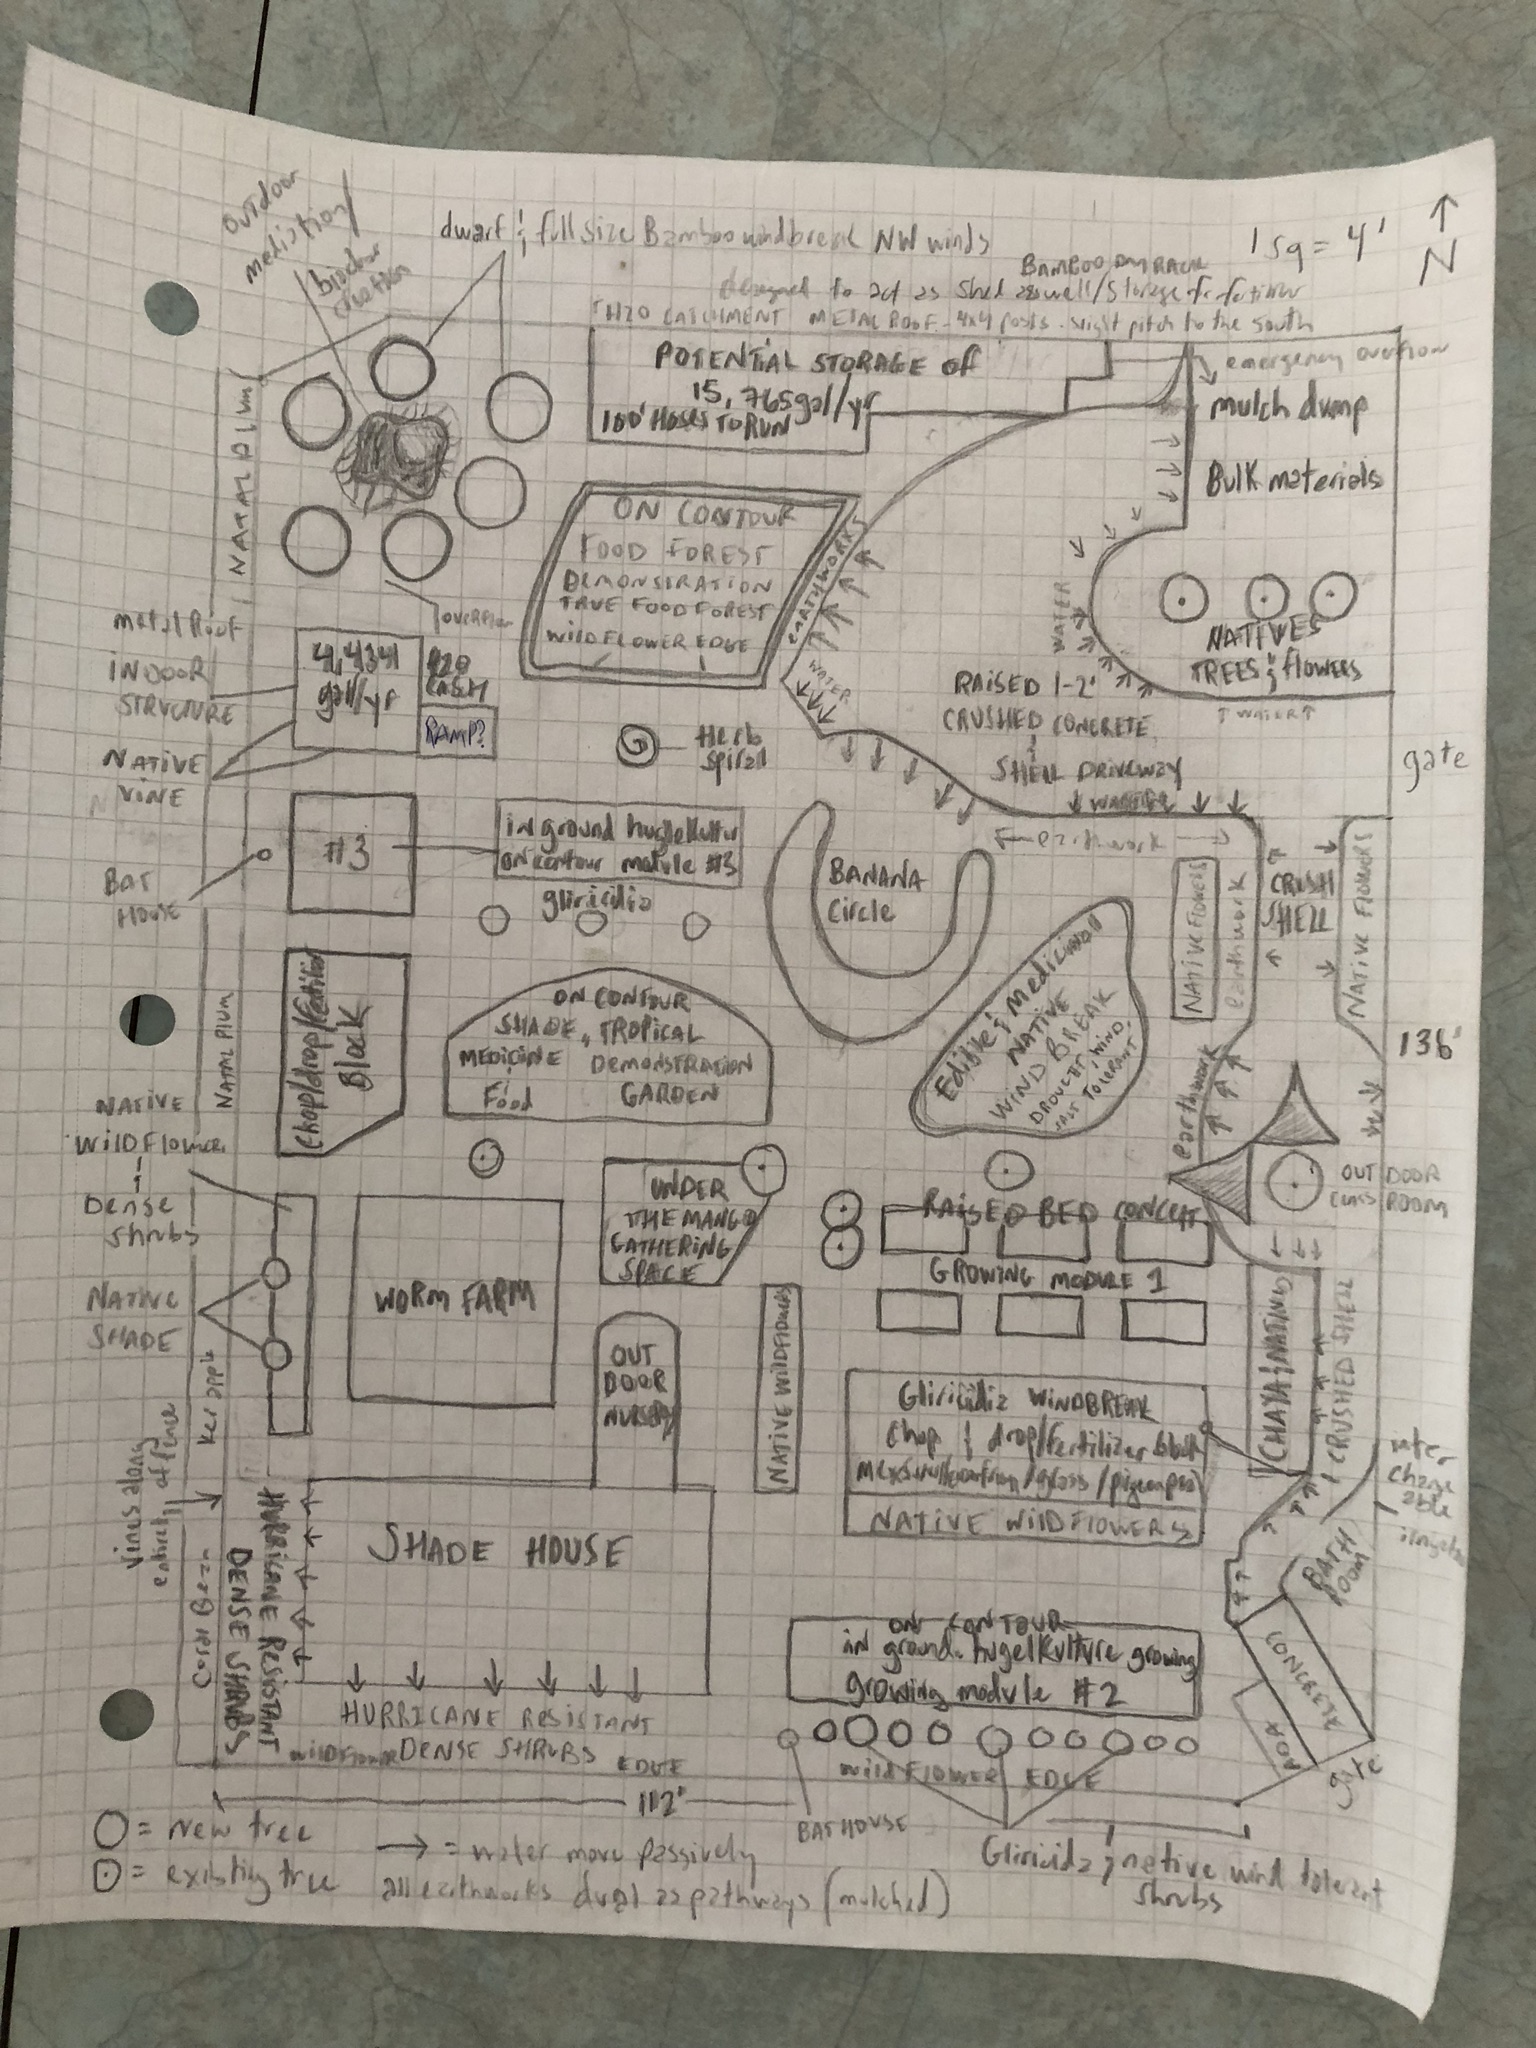 OUTDOOR
mediation/
dwarf & full size Bamboo windbreak NW winds
1 sq = 4'
N
BAMBOO
designed to act as shed aswell/storage for fertilizer
H20 CATCHMENT METAL ROOF - 4x4 posts - slight pitch to the South
POTENTIAL STORAGE of
15,765gal/yr
100' HOSES TO RUN
emergency overflow
mulch dump
Bulk materials
NATAL PLUM
ON CONTOUR
FOOD FOREST
DEMONSTRATION
TRUE FOOD FOREST
WILDFLOWER EDGE
EARTHWORKS
WATER
WATER
NATIVES
TREES & flowers
↑ WATER ↑
metal Roof
INDOOR
STRUCTURE
4,434
gal/yr
H20
CASH
RAMP?
overflow
NATIVE
VINE
Herb
spiral
RAISED 1-2'
CRUSHED CONCRETE
&
SHELL DRIVEWAY
WATER
gate
← earthwork →
#3
in ground hugelkultur
on contour module #3
gliricidia
BAT
HOUSE
BANANA
Circle
NATIVE FLOWERS
earthwork
CRUSH
SHELL
NATIVE FLOWERS
Chop/drop/fertilizer
Block
NATAL PLUM
ON CONTOUR
SHADE, TROPICAL
MEDICINE DEMONSTRATION
& Food GARDEN
Edible & Medicinal
NATIVE
WIND BREAK
DROUGHT, WIND,
SALT TOLERANT
136'
earthwork
NATIVE
WILDFLOWER
&
Dense
shrubs
OUTDOOR
CLASS ROOM
UNDER
THE MANGO
GATHERING
SPACE
RAISED BED CONCEPT
GROWING MODULE 1
NATIVE
SHADE
WORM FARM
OUT
DOOR
NURSERY
NATIVE WILDFLOWERS
CHAYA & NATIVES
CRUSHED SHELL
Kei apple
Gliricidia WINDBREAK
Chop & drop/fertilizer block
NATIVE WILDFLOWERS
inter
change
able
Vines along
entirety of fence
SHADE HOUSE
HURRICANE RESISTANT
DENSE SHRUBS
Coral Bean
BATH
room
CONCRETE
ADA
gate
ON CONTOUR
in ground hugelkulture growing
growing module #2
HURRICANE RESISTANT
wildflower DENSE SHRUBS EDGE
wildFLOWER EDGE
112'
BAT HOUSE
Gliricidia & native wind tolerant
shrubs
○ = New tree
→ = water move passively
⊙ = existing tree
all earthworks dual as pathways (mulched)